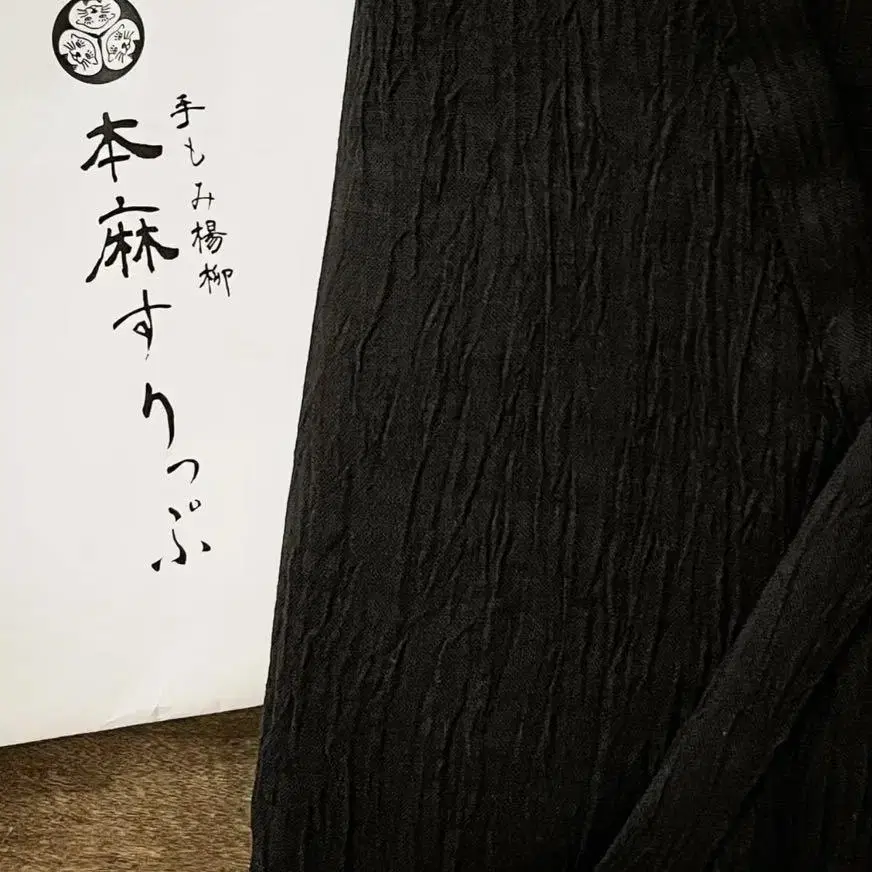 手もみ楊柳
本麻すりっぷ